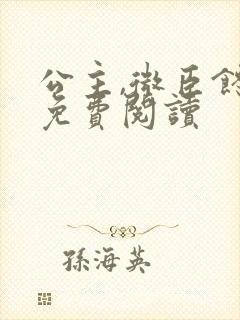 公主,微臣
免費閱讀
孫海英